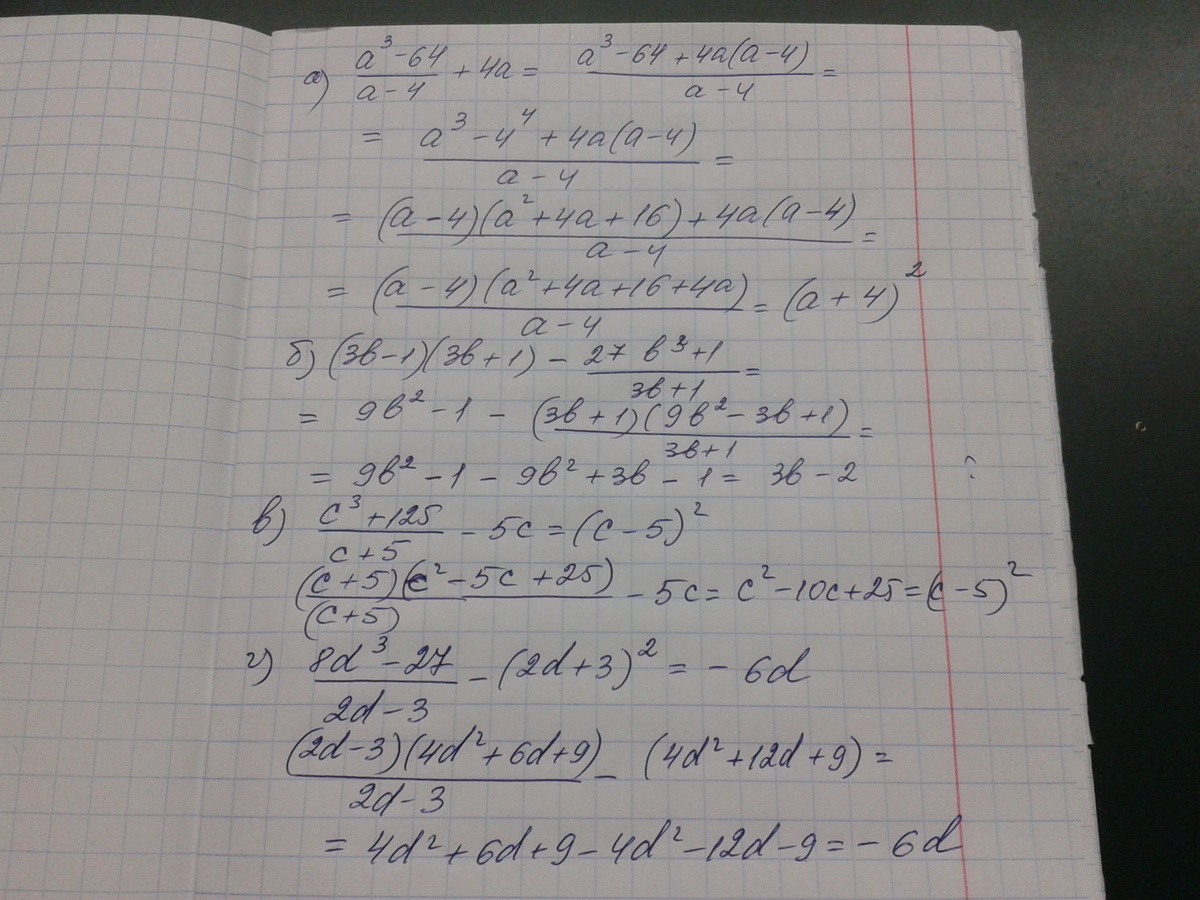 а) (a³-64)/(a-4) + 4a = (a³-64+4a(a-4))/(a-4) =
= (a³-4⁴+4a(a-4))/(a-4) =
= ((a-4)(a²+4a+16)+4a(a-4))/(a-4) =
= ((a-4)(a²+4a+16+4a))/(a-4) = (a+4)²
б) (3b-1)(3b+1) - (27b³+1)/(3b+1) =
= 9b²-1 - ((3b+1)(9b²-3b+1))/(3b+1) =
= 9b²-1-9b²+3b-1 = 3b-2
в) (c³+125)/(c+5) - 5c = (c-5)²
((c+5)(c²-5c+25))/(c+5) - 5c = c²-10c+25 = (c-5)²
г) (8d³-27)/(2d-3) - (2d+3)² = -6d
((2d-3)(4d²+6d+9))/(2d-3) - (4d²+12d+9) =
= 4d²+6d+9-4d²-12d-9 = -6d